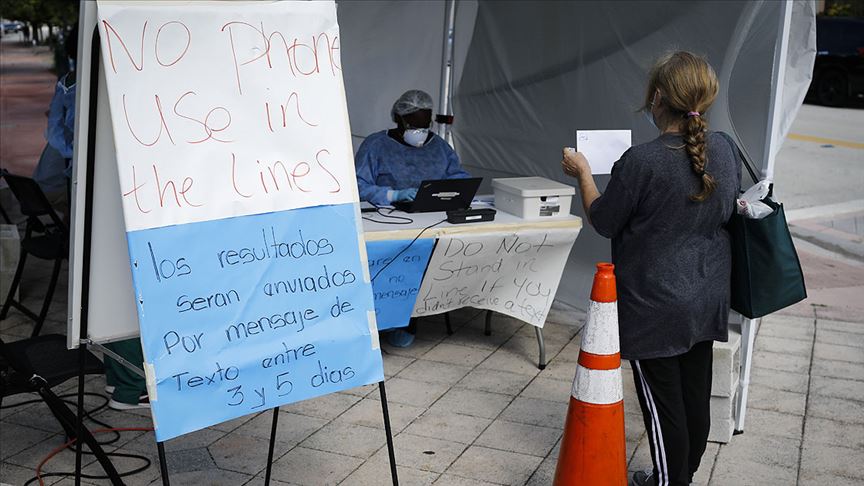 NO Phone
Use in
the Lines
los resultados
seran enviados
Por mensaje de
Texto entre
3 y 5 dias
en
no
mensaje
Do Not
Stand in
Line If you
didn't receive a text